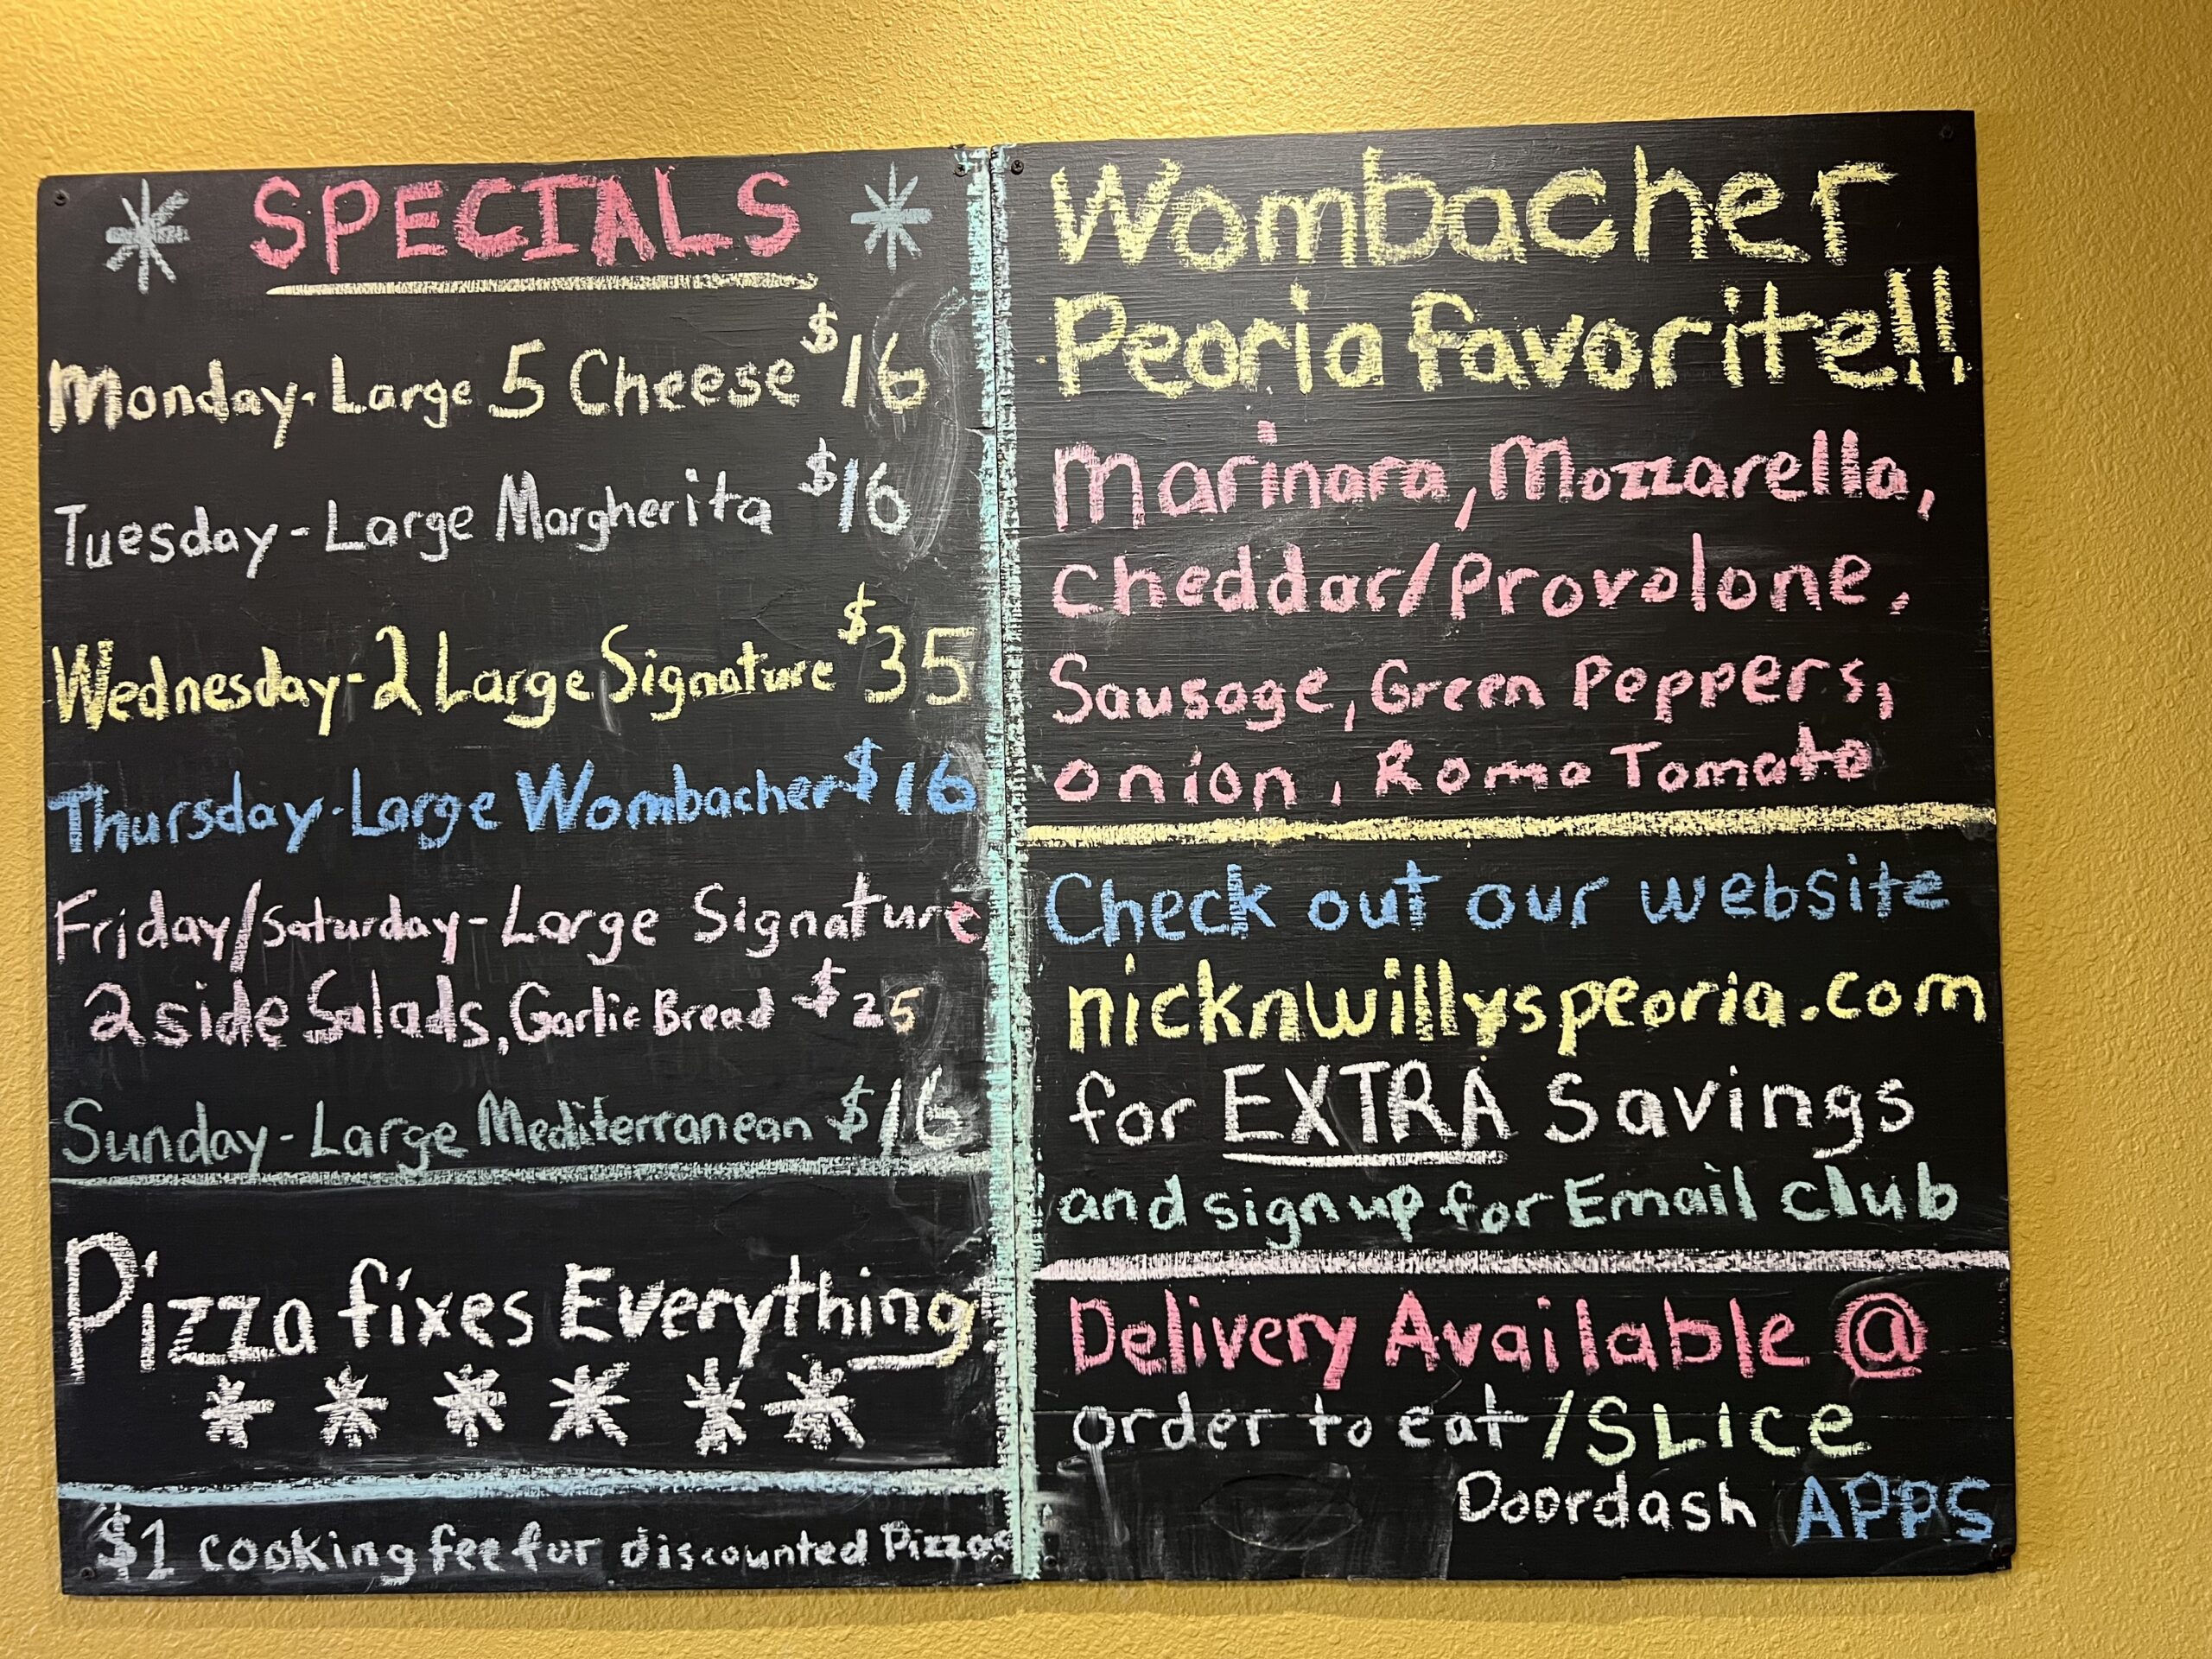 * SPECIALS *
Monday-Large 5 Cheese $16
Tuesday-Large Margherita $16
Wednesday-2 Large Signature $35
Thursday-Large Wombacher $16
Friday/Saturday-Large Signature,
2 side Salads, Garlic Bread $25
Sunday-Large Mediterranean $16
Pizza fixes Everything!
* * * * * *
$1 cooking fee for discounted Pizzas
Wombacher
Peoria favorite!!
Marinara, Mozzarella,
Cheddar/Provolone,
Sausage, Green Peppers,
onion, Roma Tomato
Check out our website
nicknwillyspeoria.com
for EXTRA Savings
and sign up for Email club
Delivery Available @
order to eat/SLICE
Doordash APPS